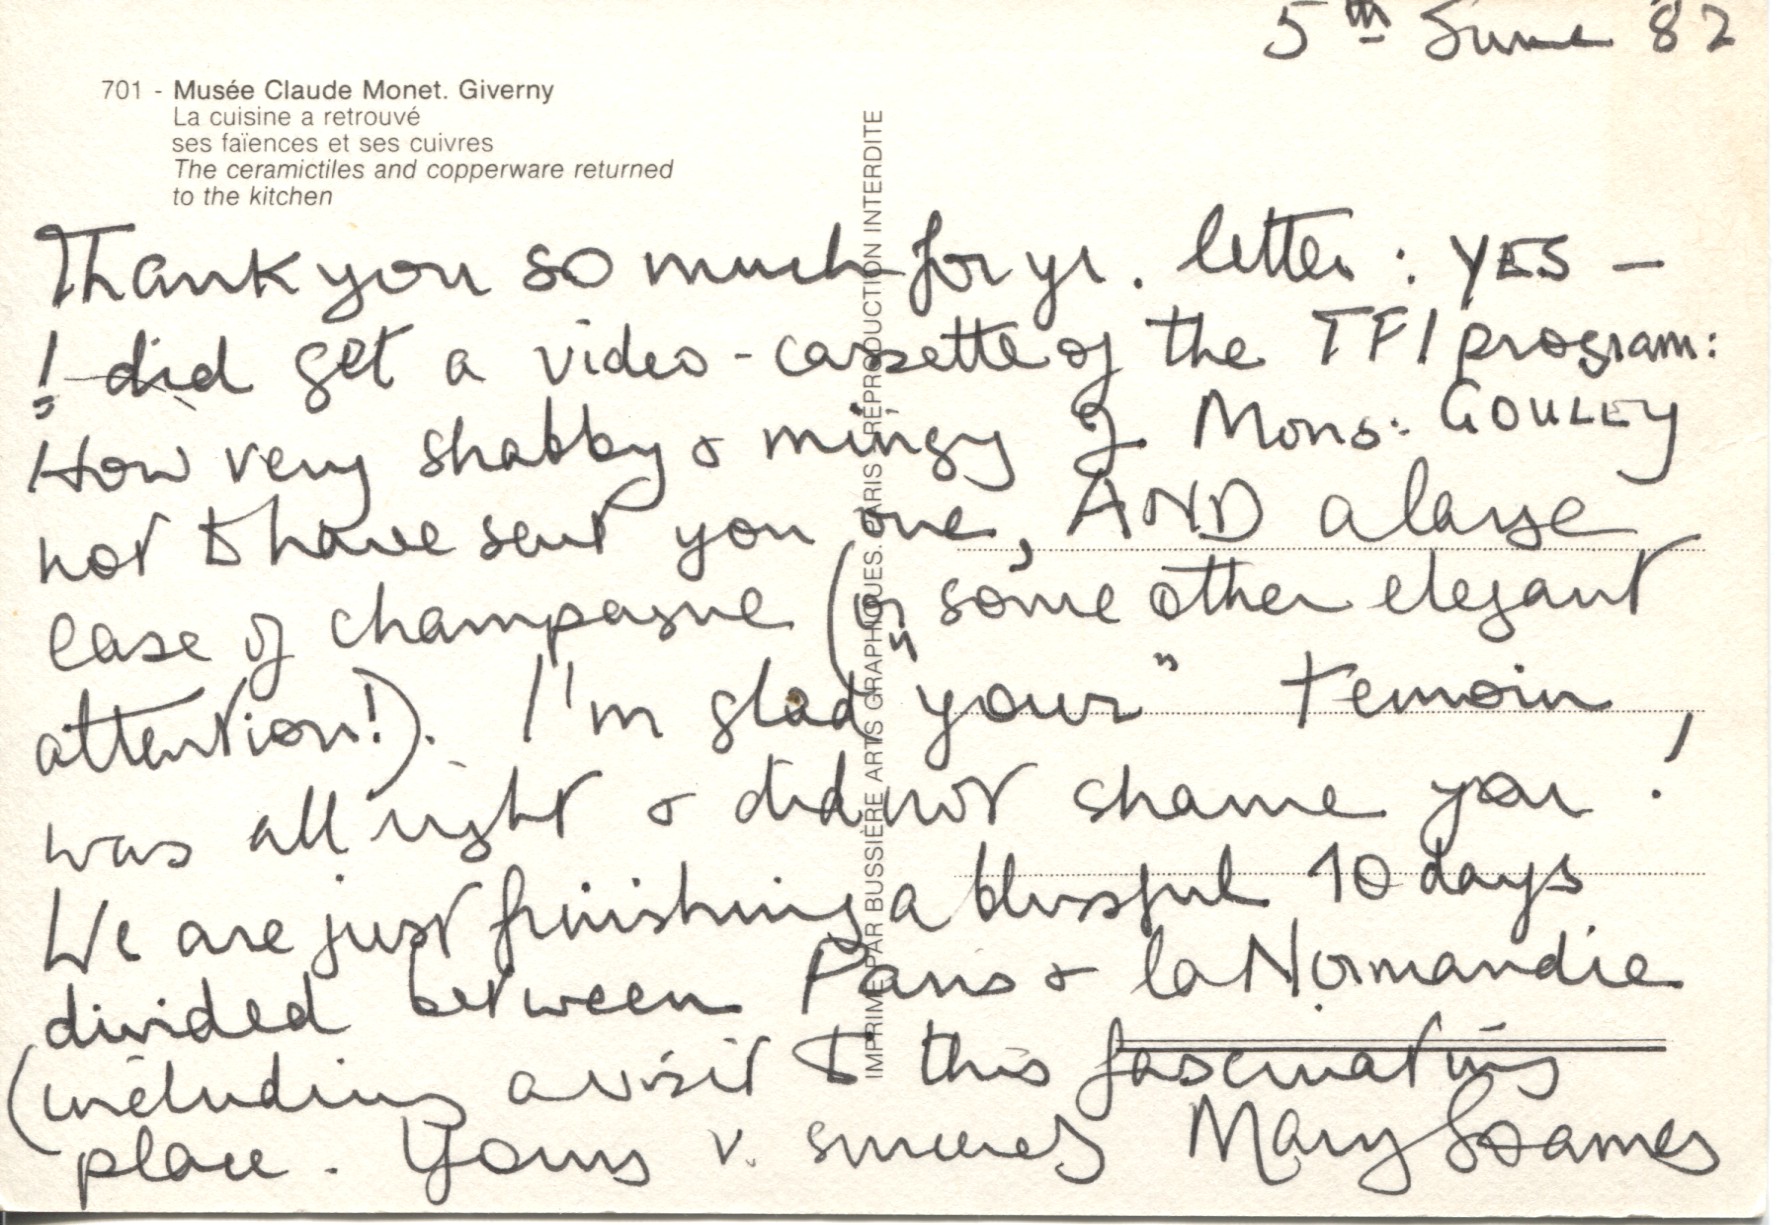 5th June '82
701 - Musée Claude Monet. Giverny
La cuisine a retrouvé
ses faïences et ses cuivres
The ceramictiles and copperware returned
to the kitchen
IMPRIMÉ PAR BUSSIÈRE ARTS GRAPHIQUES. PARIS. REPRODUCTION INTERDITE
Thank you so much for yr. letter: YES –
I did get a video-cassette of the TF1 program:
How very shabby & mingy of Mons: GOULEY
not to have sent you one, AND a large
case of champagne (or some other elegant
attention!). I'm glad "your" temoin,
was all right & did not shame you!
We are just finishing a blissful 10 days
divided between Paris & la Normandie
(including a visit to this fascinating
place. Yours v. sincerely Mary Soames